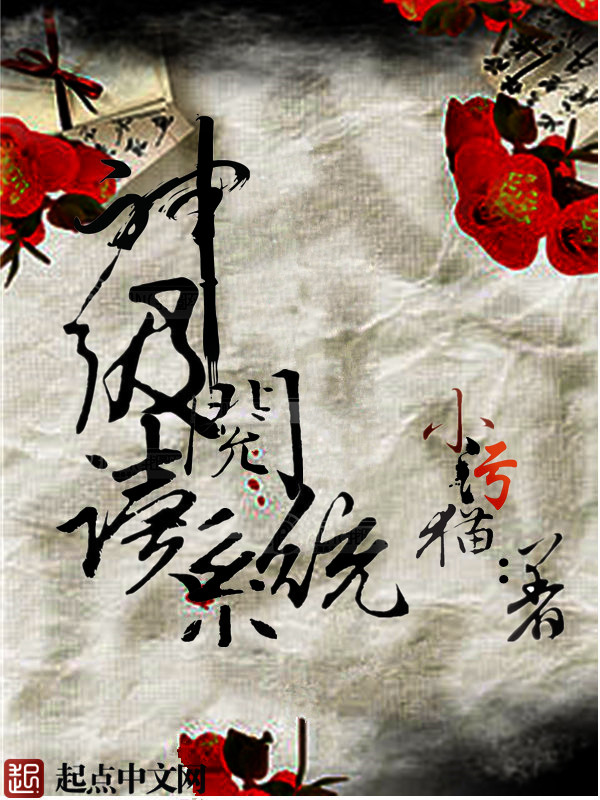 神级
閱
读系统
小
猫:著
起点中文网